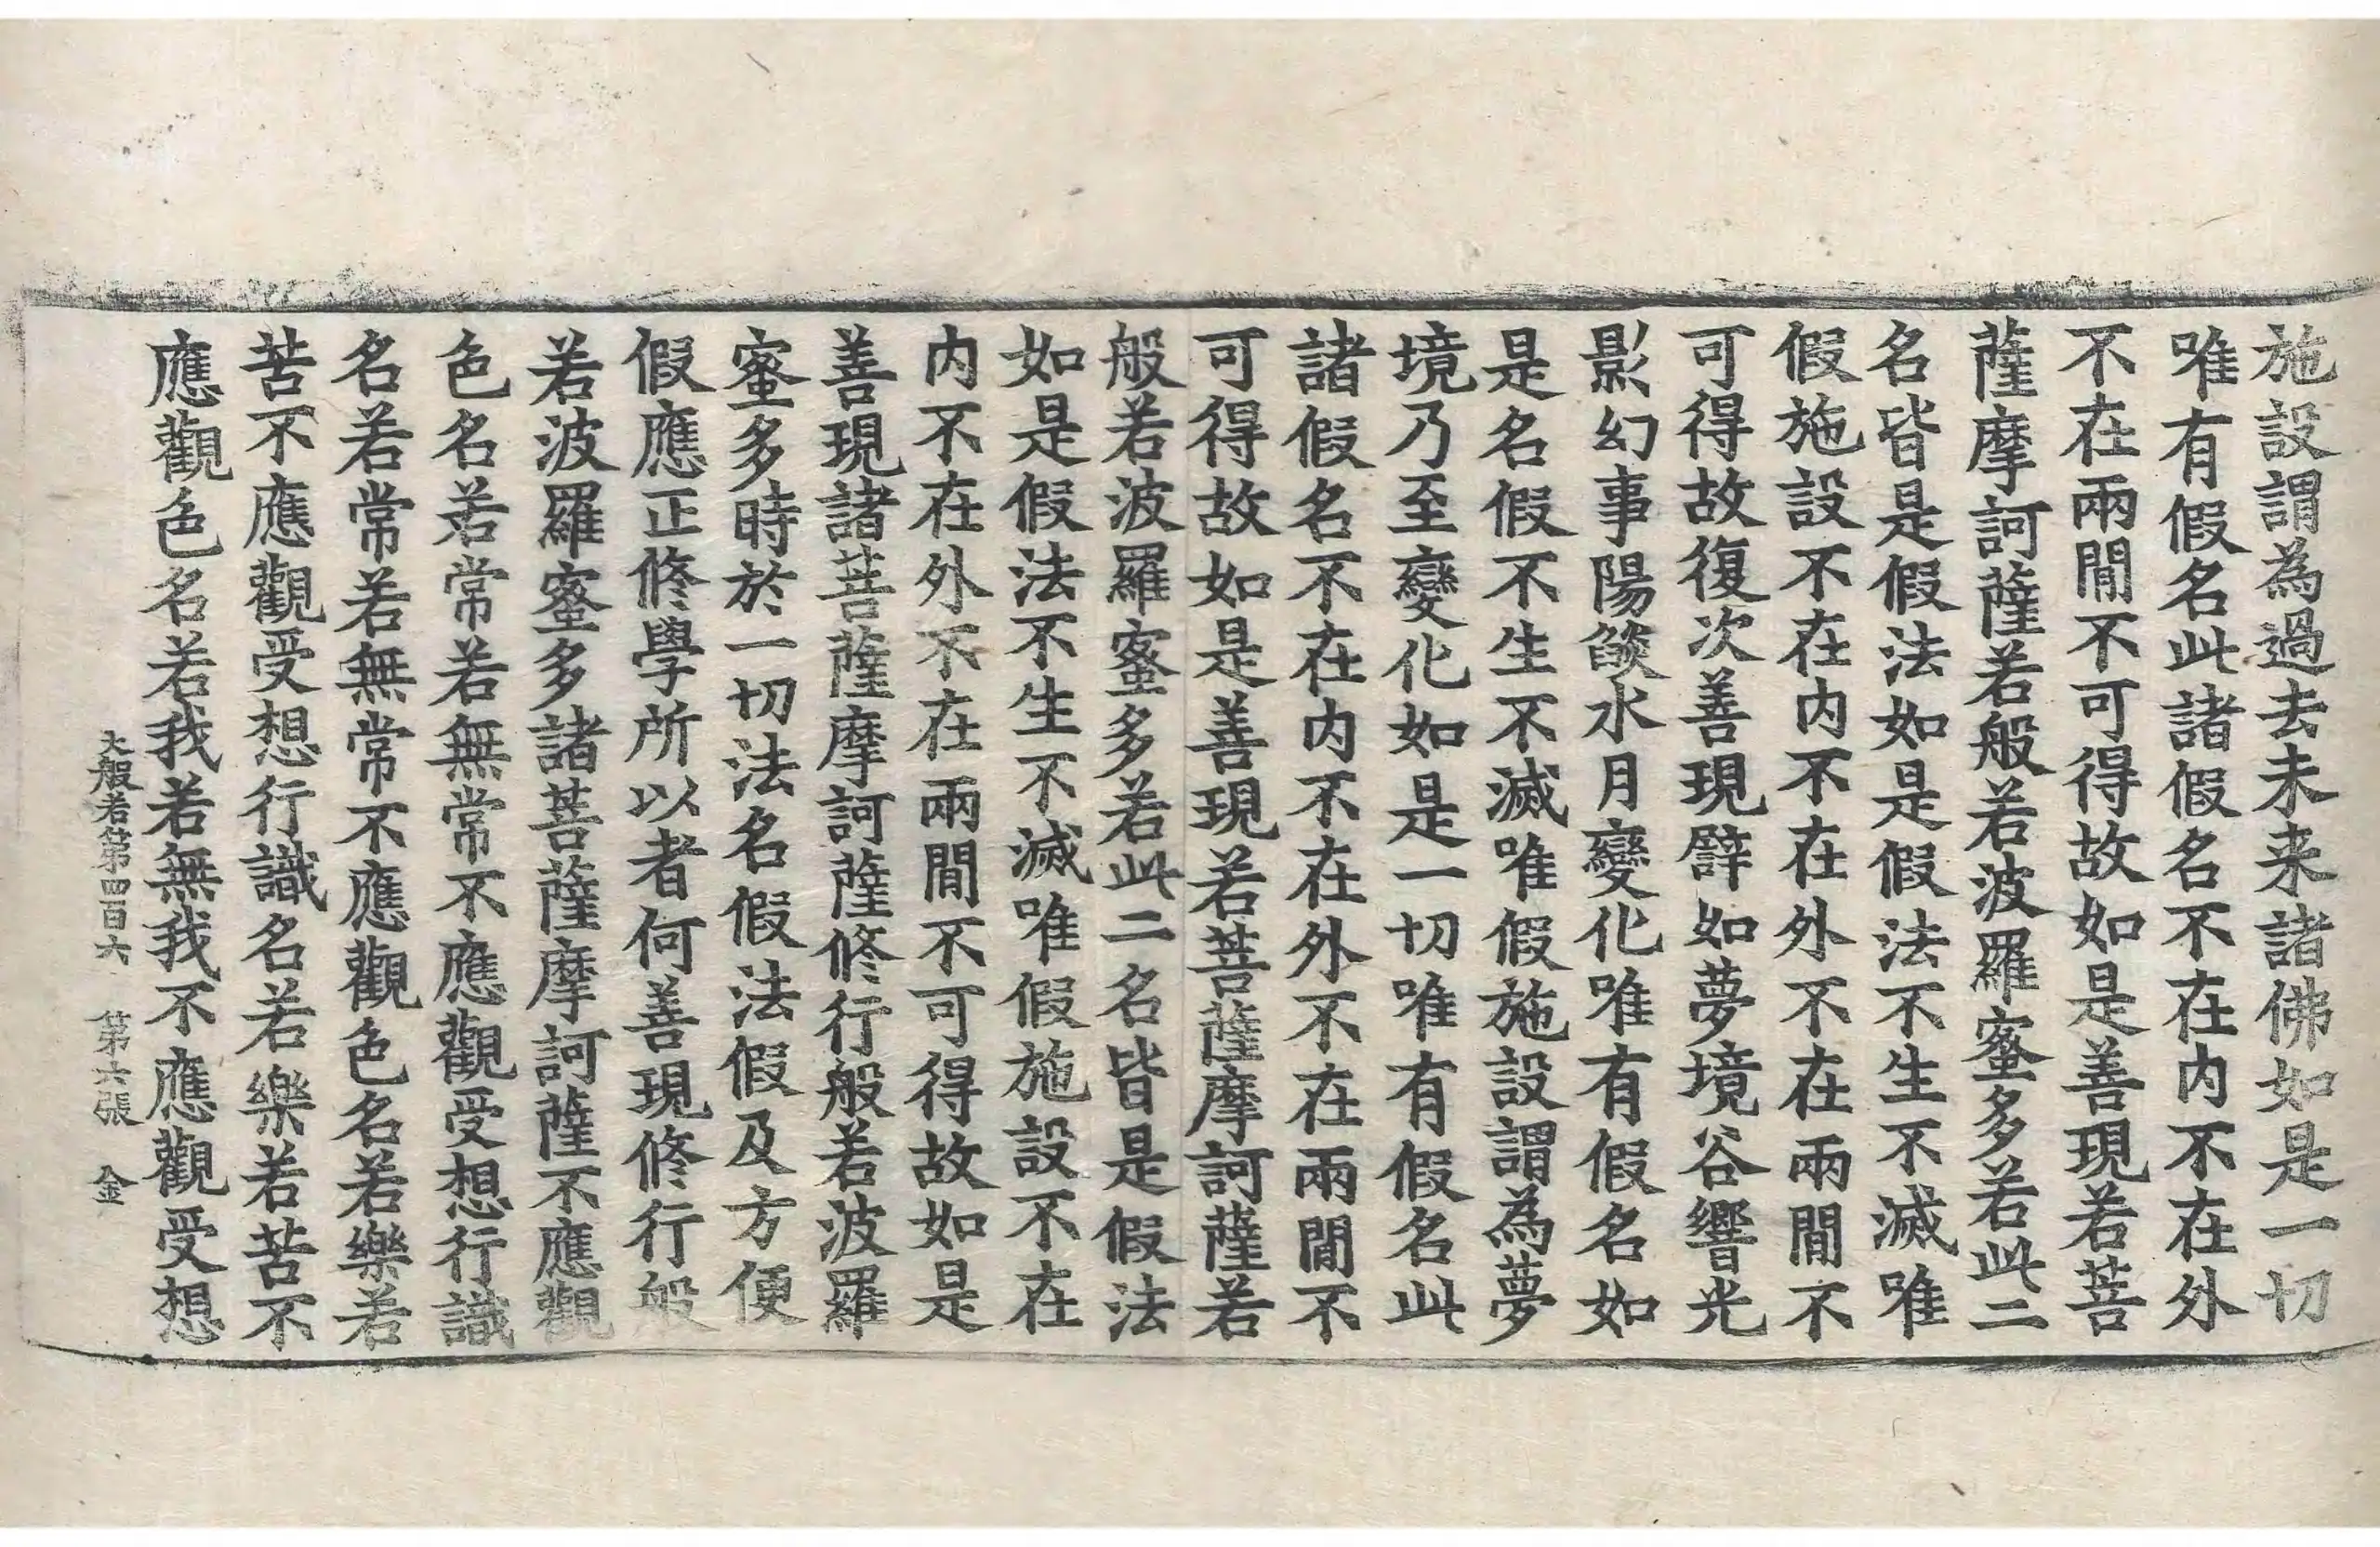 施設謂為過去未来諸佛如是一切
唯有假名此諸假名不在内不在外
不在兩間不可得故如是善現若菩
薩摩訶薩若般若波羅蜜多若此二
名皆是假法如是假法不生不滅唯
假施設不在内不在外不在兩間不
可得故復次善現譬如夢境谷響光
影幻事陽焰水月變化唯有假名如
是名假不生不滅唯假施設謂為夢
境乃至變化如是一切唯有假名此
諸假名不在内不在外不在兩間不
可得故如是善現若菩薩摩訶薩若
般若波羅蜜多若此二名皆是假法
如是假法不生不滅唯假施設不在
内不在外不在兩間不可得故如是
善現諸菩薩摩訶薩修行般若波羅
蜜多時於一切法名假法假及方便
假應正修學所以者何善現修行般
若波羅蜜多諸菩薩摩訶薩不應觀
色名若常若無常不應觀受想行識
名若常若無常不應觀色名若樂若
苦不應觀受想行識名若樂若苦不
應觀色名若我若無我不應觀受想
大般若第四百六 第六張 金